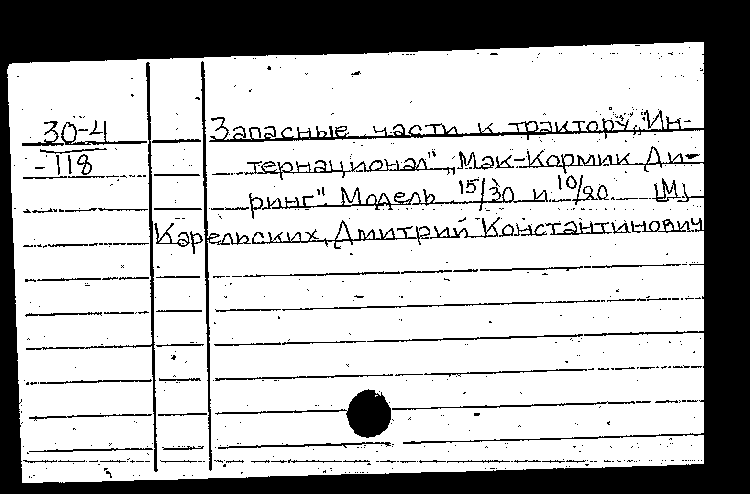 30-4
-118
Запасные части к трактору „Ин-
тернационал" „Мак-Кормик Ди-
ринг". Модель 15/30 и 10/20. [М]
Карельских, Дмитрий Константинович